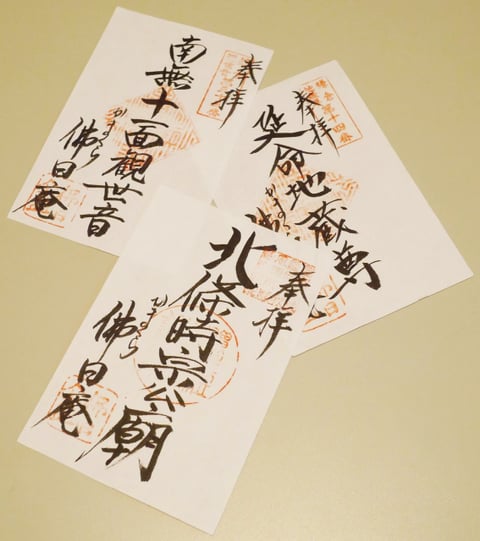 奉拝
南無十一面観世音
かまくら
佛日庵
奉拝
延命地蔵尊
奉拝
北條時宗公廟
かまくら
佛日庵